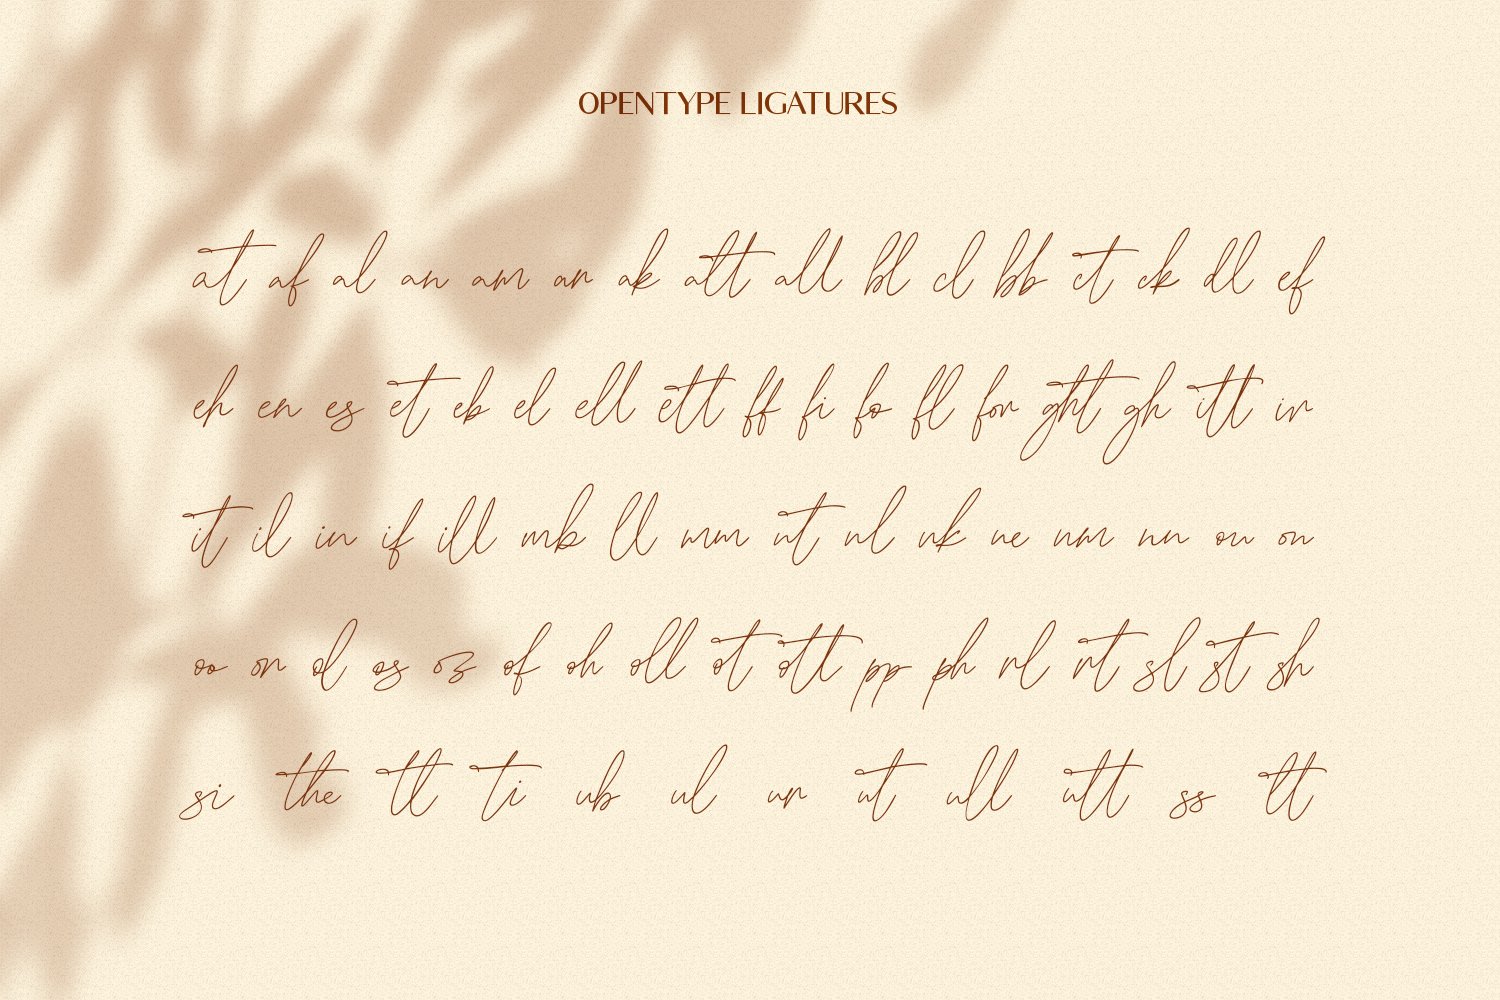 OPENTYPE LIGATURES
at af al an am ar ak att all bl cl bb ct ck dl ef
eh en es et eb el ell ett ff fi fo fl for ght gh itt ir
it il in if ill mb ll mm nt nl nk ne nm nn ou on
oo or ol os oz of oh oll ot ott pp ph rl rt sl st sh
si the tl ti ub ul ur ut ull utt ss tt